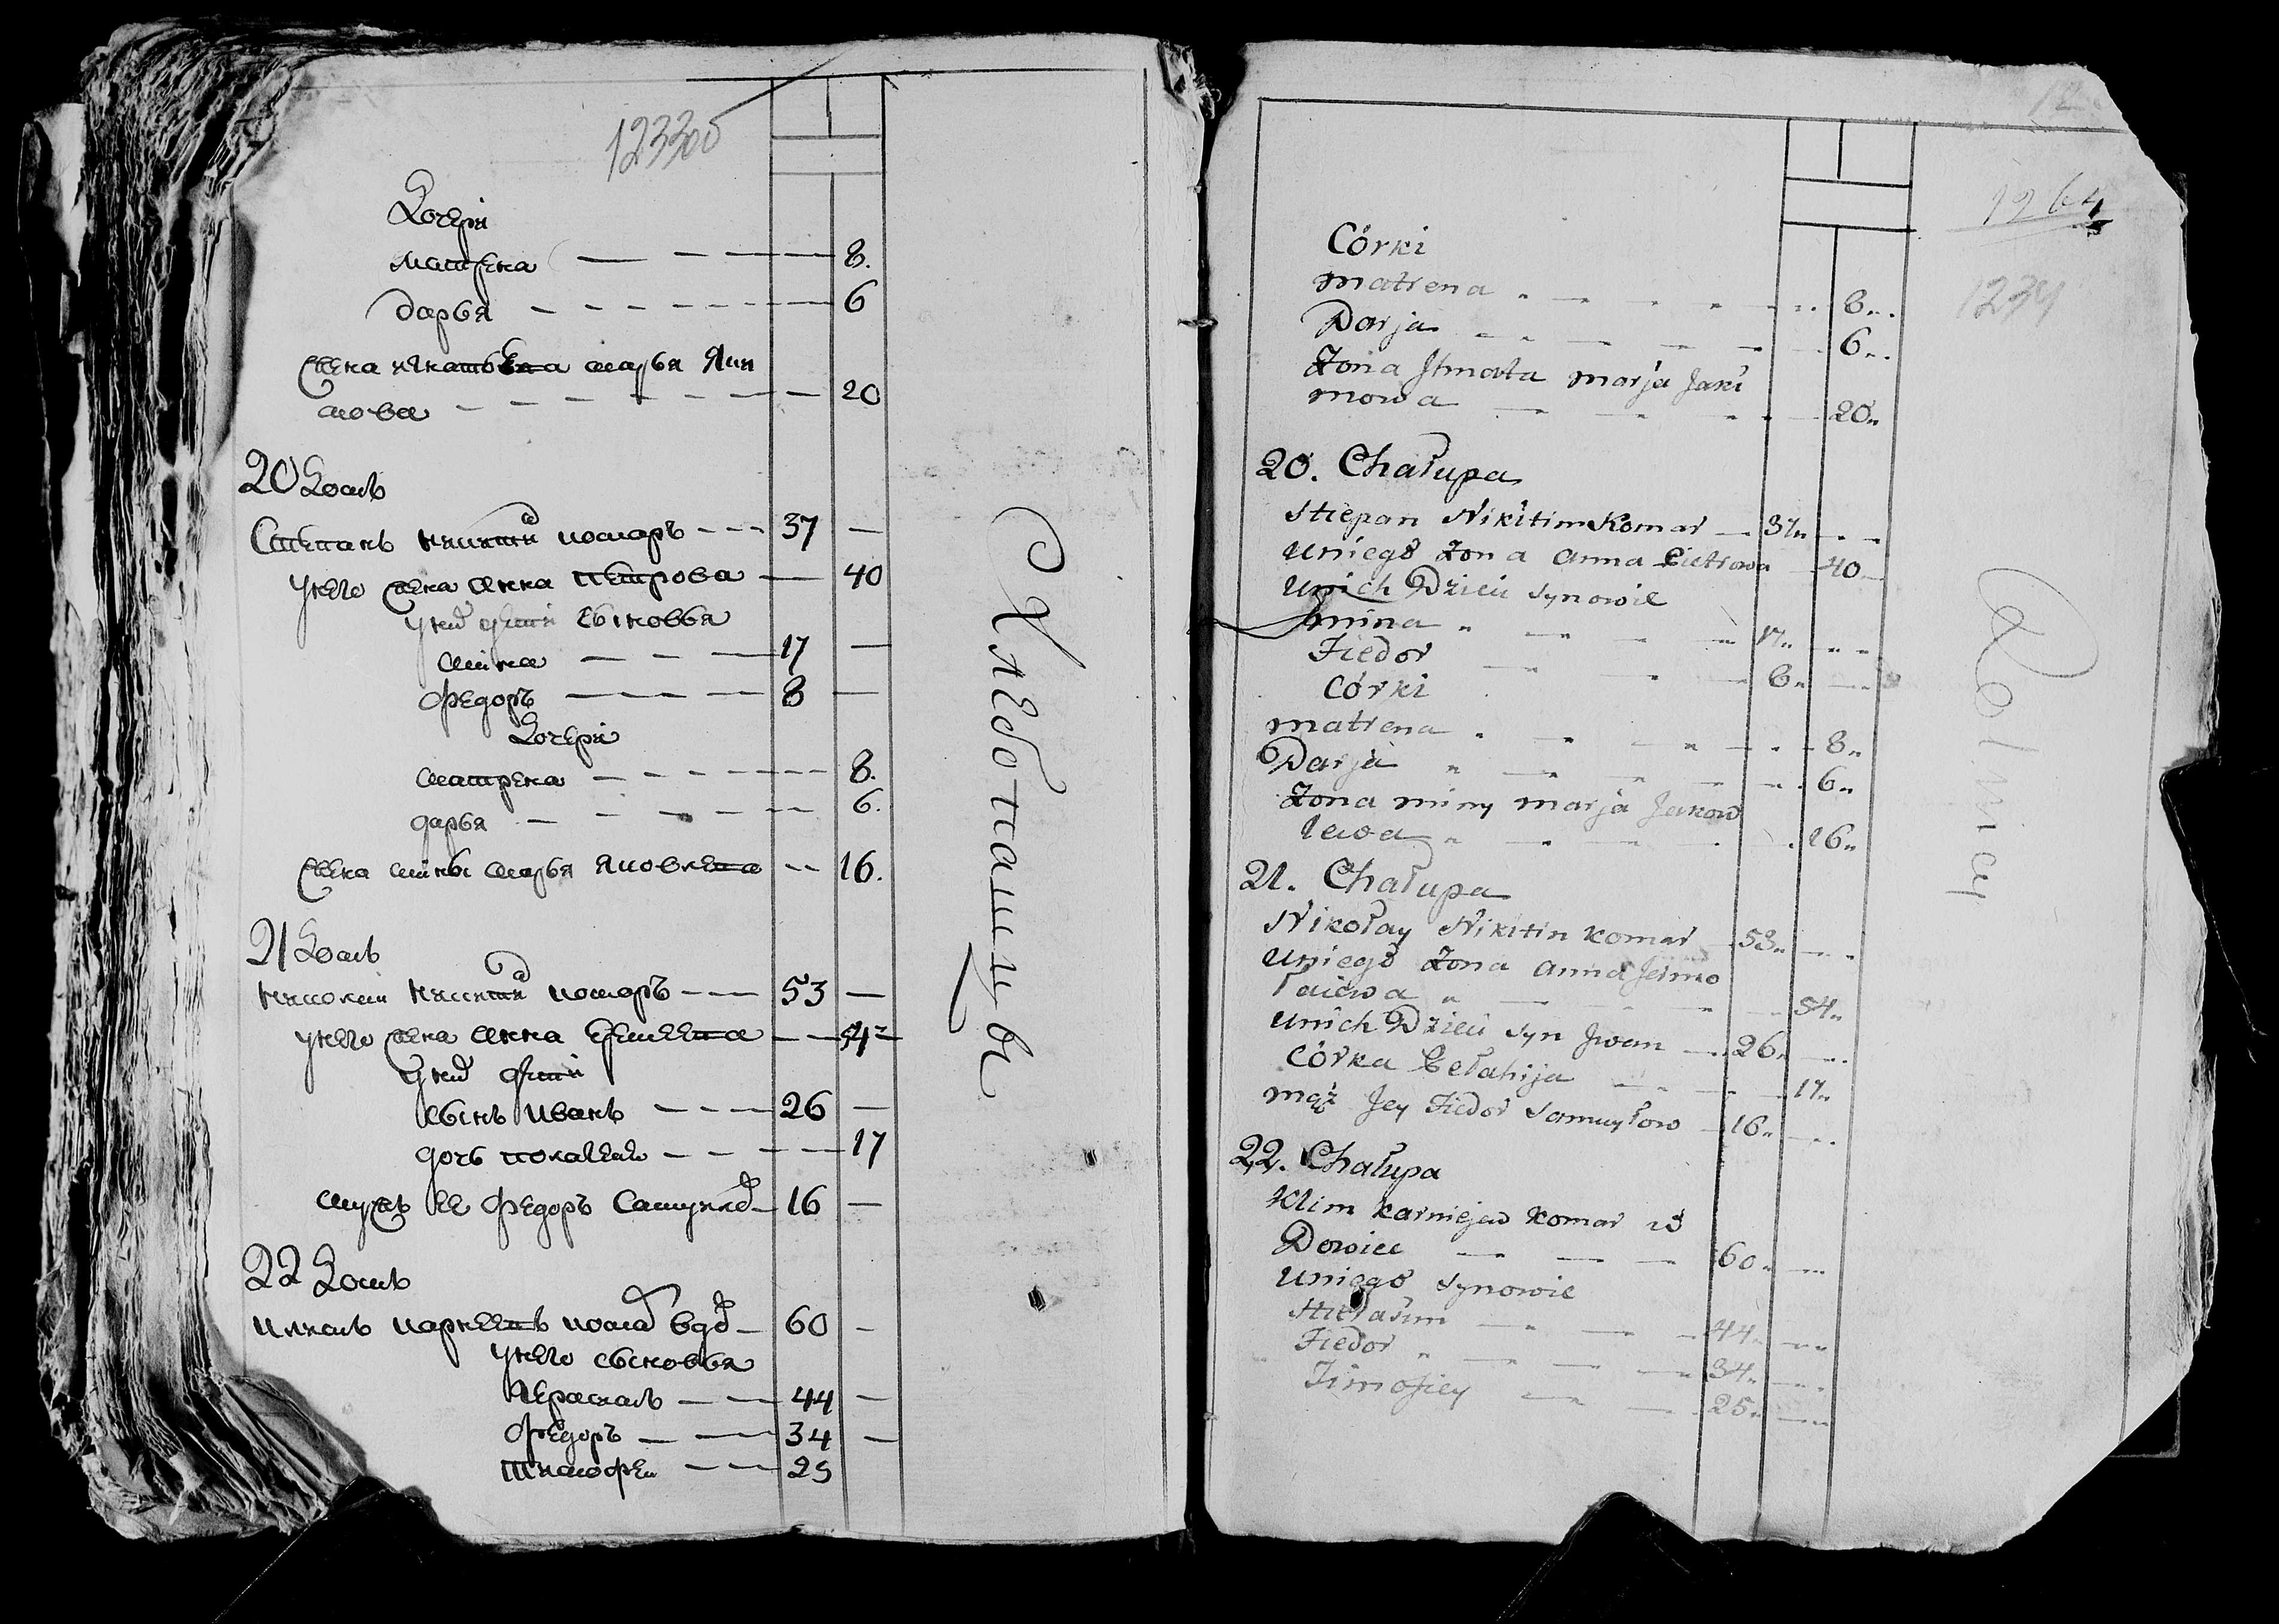 123300
Дочери
Матрена 8.
дарья 6
жена игнатьева марья Яки
мова 20
20 Домъ
Степанъ никити комаръ 37 —
у него жена анна петрова — 40
у них дети сыновья
мина 17 —
федоръ 8 —
Дочери
матрена 8.
дарья 6.
жена мины марья яковлева 16.
21 Домъ
николаи никити комаръ 53 —
у него жена анна ермеева 54
у них дети
сынъ иванъ 26 —
дочь 17
мужъ ее федоръ Самуило 16 —
22 Домъ
климъ карнеевъ кома вдо 60 —
у него сыновья
герасимъ 44 —
федоръ 34 —
тимофеи 25
Хлебопашцы
12
1264
1234
Córki
matrena 8
Darja 6
Zona Ihnata marja Jaki
mowa 20
20. Chałupa
Stiepan Nikitin Komar 37
uniego Zona anna Pietrowa 40
unich Dzieci synowie
mina 17
Fiedor 8
Córki
matrena 8
Darja 6
Zona miny marja Jakow
lewa 16
21. Chałupa
Nikołay Nikitin Komar 53
uniego Zona anna Jermo
łaiewa 54
unich Dzieci syn Jwan 26
Córka Pełahija 17
mąż Jey Fiedor Samuyłow 16
22. Chałupa
Klim Karniejew Komar w
Dowiec 60
uniego synowie
44
Fiedor 34
Timofiey 25
Rolnicy